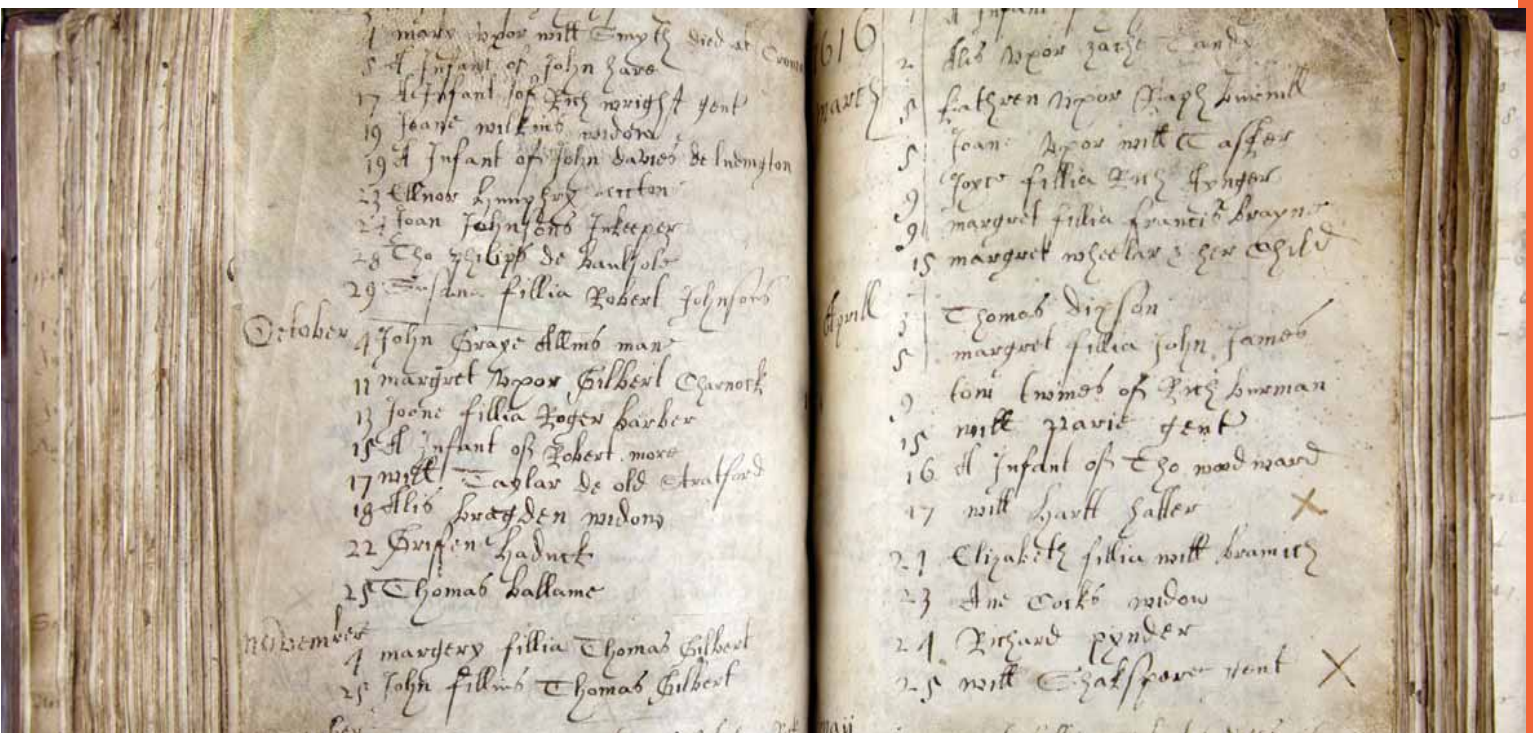 4 mary vxor will Smyth died at
8 A Infant of John Hare
17 A Infant of Rich wright gent
19 Joane wilkins widow
19 A Infant of John davies de ludington
23 Ellnor Humphry
27 Joan Johnsons Inkeeper
28 Tho philipps de
29 Susana fillia Robert Johnsons
October 4 John Graye Allins man
11 margret vxor Gilbert Charnock
13 Joone fillia Roger barber
15 A Infant of Robert more
17 will Taylar de old Stratford
18 Alis bragden widow
22 Grifene hadnck
25 Thomas ballame
november 4 margery fillia Thomas Gilbert
25 John fillius Thomas Gilbert
A Infant
1616 2 Alis vxor
march 5 kathren vxor Raph burnill
5 Joane vxor will Tasker
9 Joyce fillia Rich Aynger
9 margret fillia francis brayne
15 margret wheelar & her Child
Aprill 3 Thomas dixson
5 margret fillia John James
9 tow twines of Rich burman
15 will parie gent
16 A Infant of Tho woodward
17 will Hartt hatter X
21 Elizabeth fillia will bramich
23 Ane Cocks widow
24 Richard pynder
25 will Shakspere gent X
may